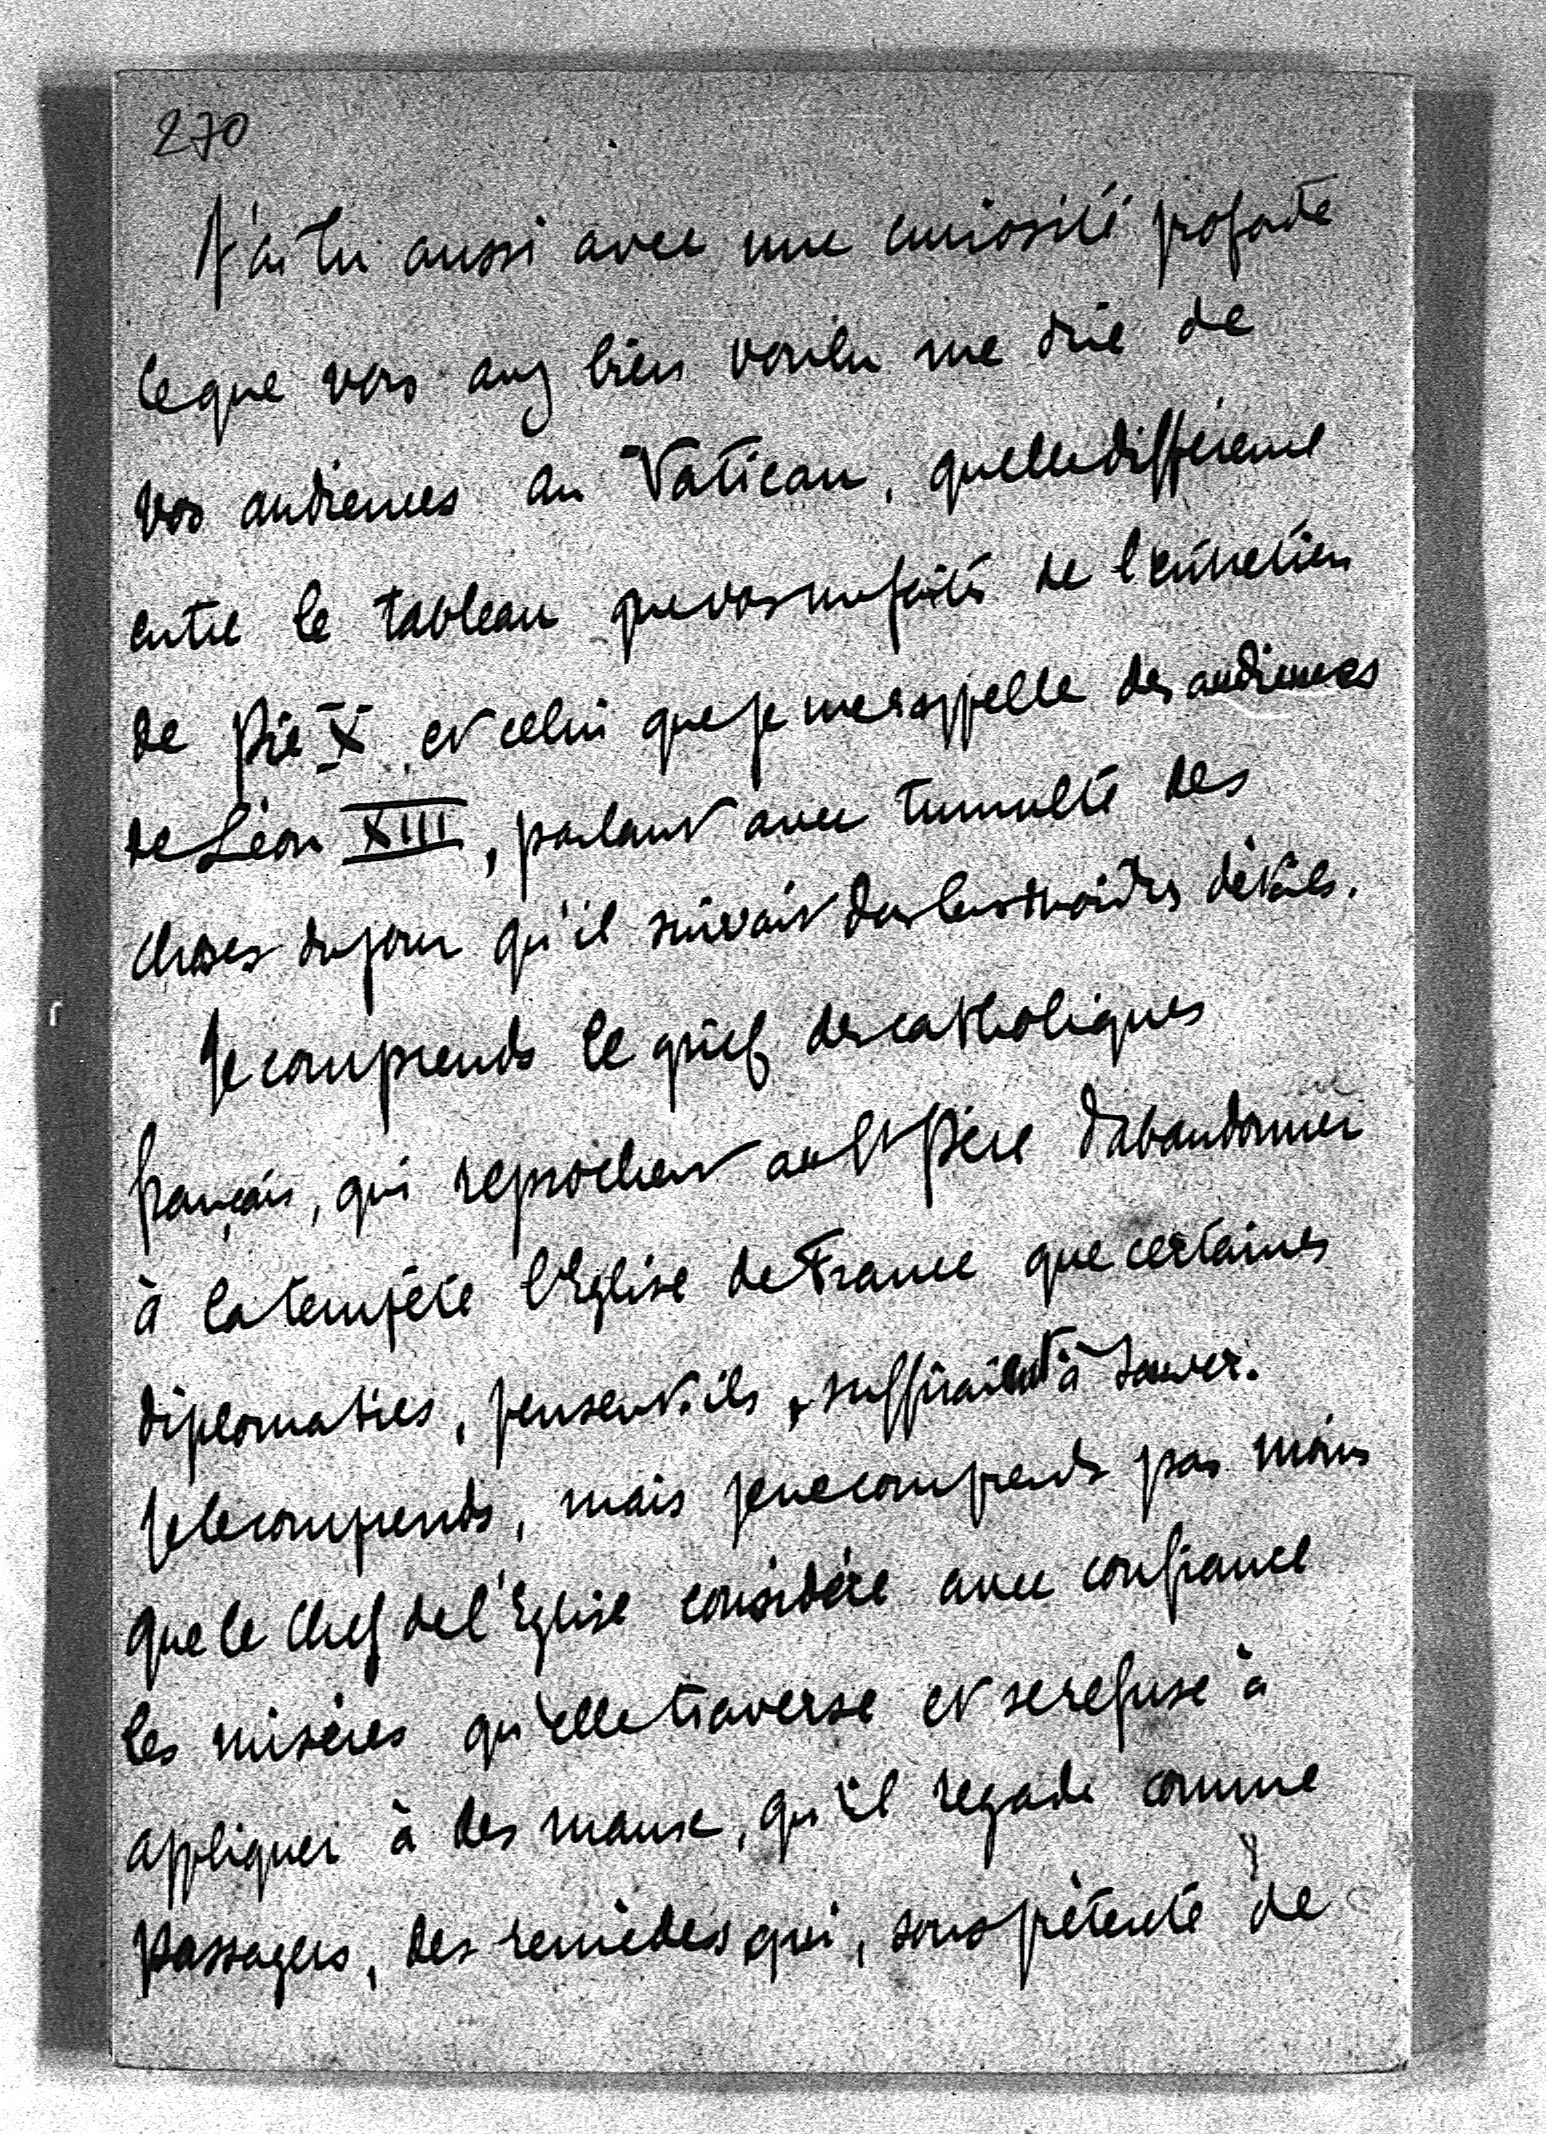 270
J'ai lu aussi avec une curiosité profonde
ce que vous avez bien voulu me dire de
vos audiences au Vatican, quelle différence
entre le tableau que vous me faites de l'entretien
de Pie X et celui que je me rappelle des audiences
de Léon XIII, parlant avec tumulte des
choses du jour qu'il suivait dans leurs moindres détails.
Je comprends le grief des catholiques
français, qui reprochent au St Père d'abandonner
à la tempête l'Eglise de France que certaines
diplomaties, pensent-ils, suffiraient à sauver.
Je le comprends, mais je ne comprends pas moins
que le Chef de l'Eglise considère avec confiance
les misères qu'elle traverse et se refuse à
appliquer à des maux, qu'il regarde comme
passagers, des remèdes qui, sous prétexte de